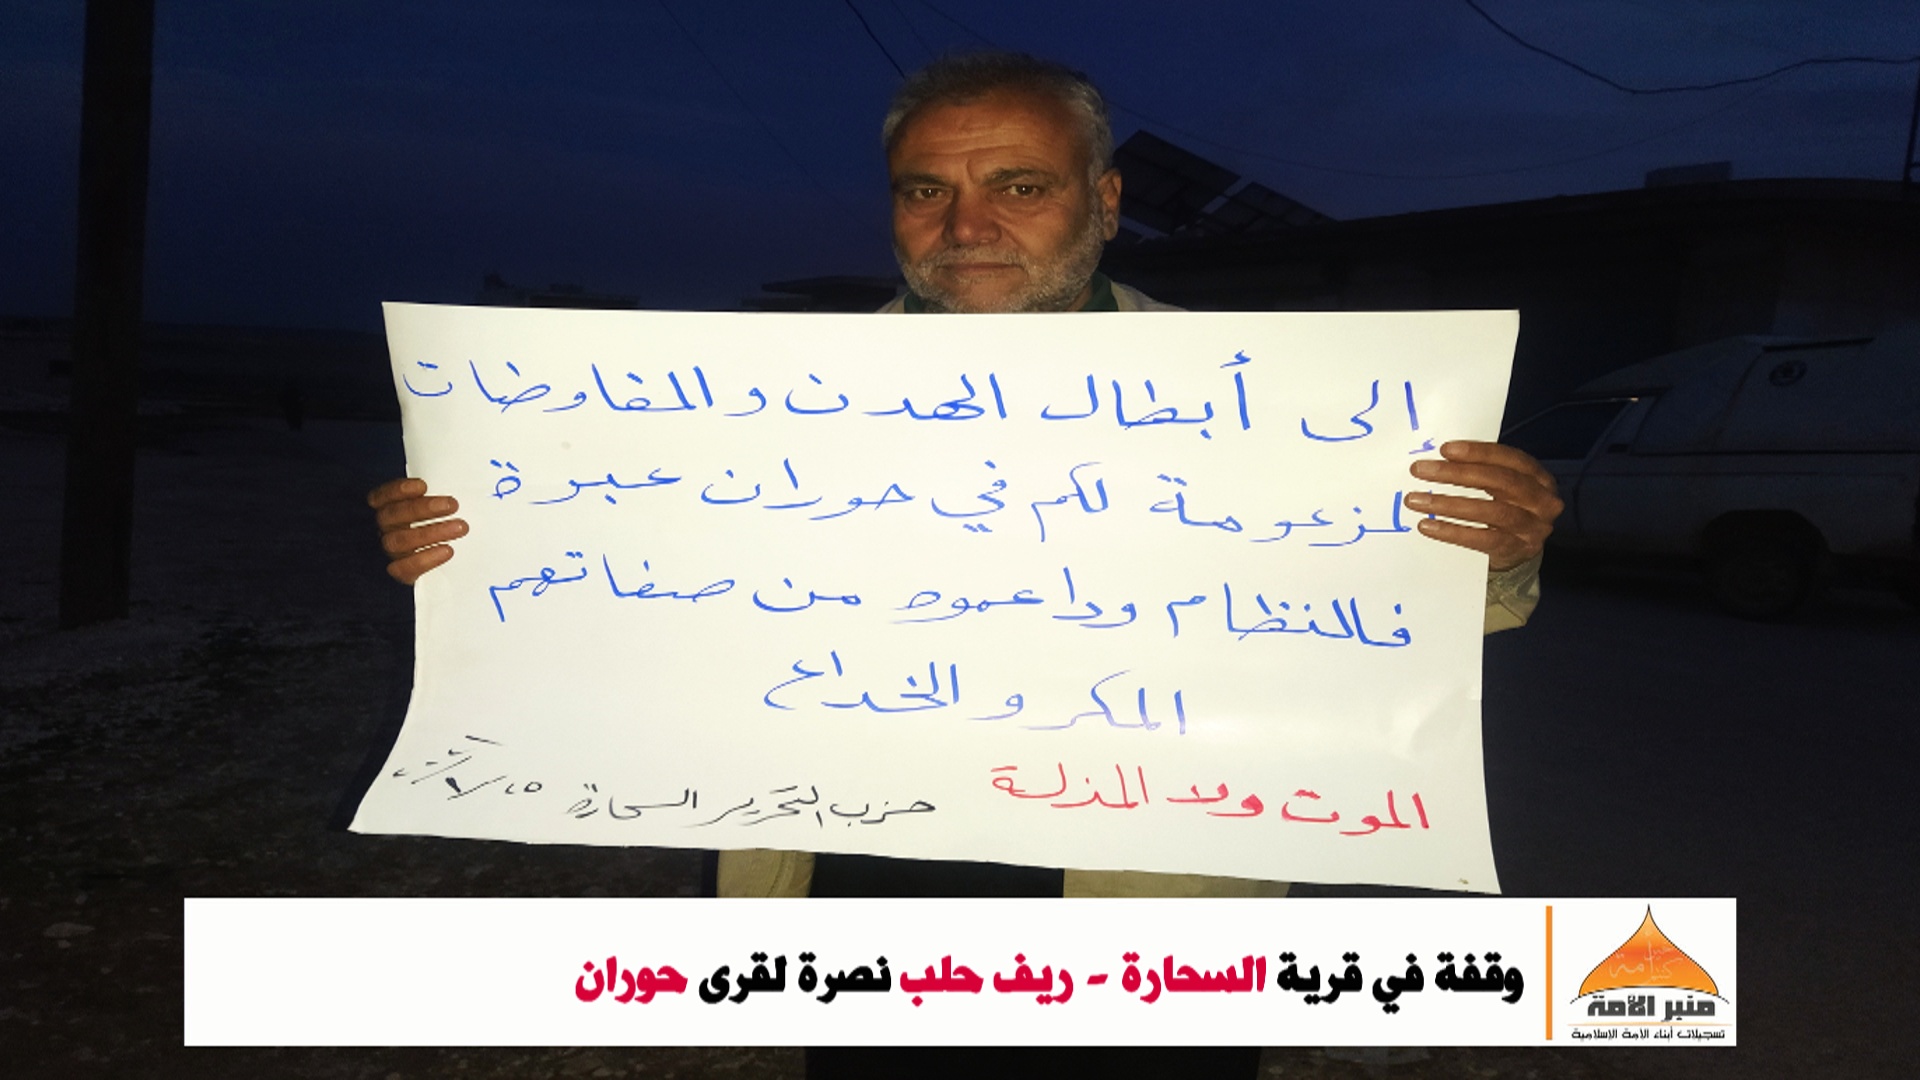 إلى أبطال الهدن والمفاوضات
المزعومة لكم في حوران عبرة
فالنظام وداعموه من صفاتهم
المكر والخداع
الموت ولا المذلة
حزب التحرير السحارة
وقفة في قرية السحارة - ريف حلب نصرة لقرى حوران
منبر الأمة
تسجيلات أبناء الأمة الإسلامية